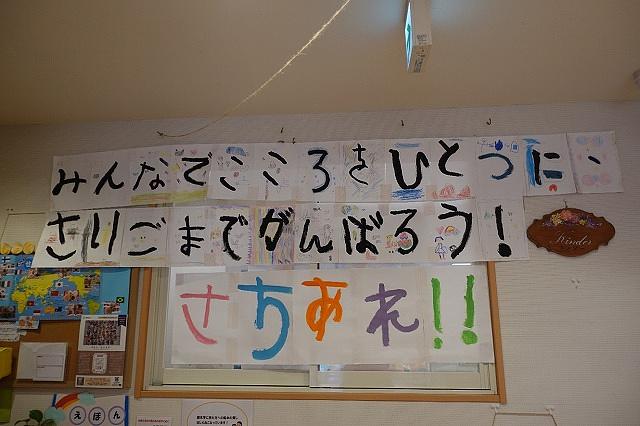 みんなでこころをひとつに、
さいごまでがんばろう！
さちあれ!!
Kinder
えほん